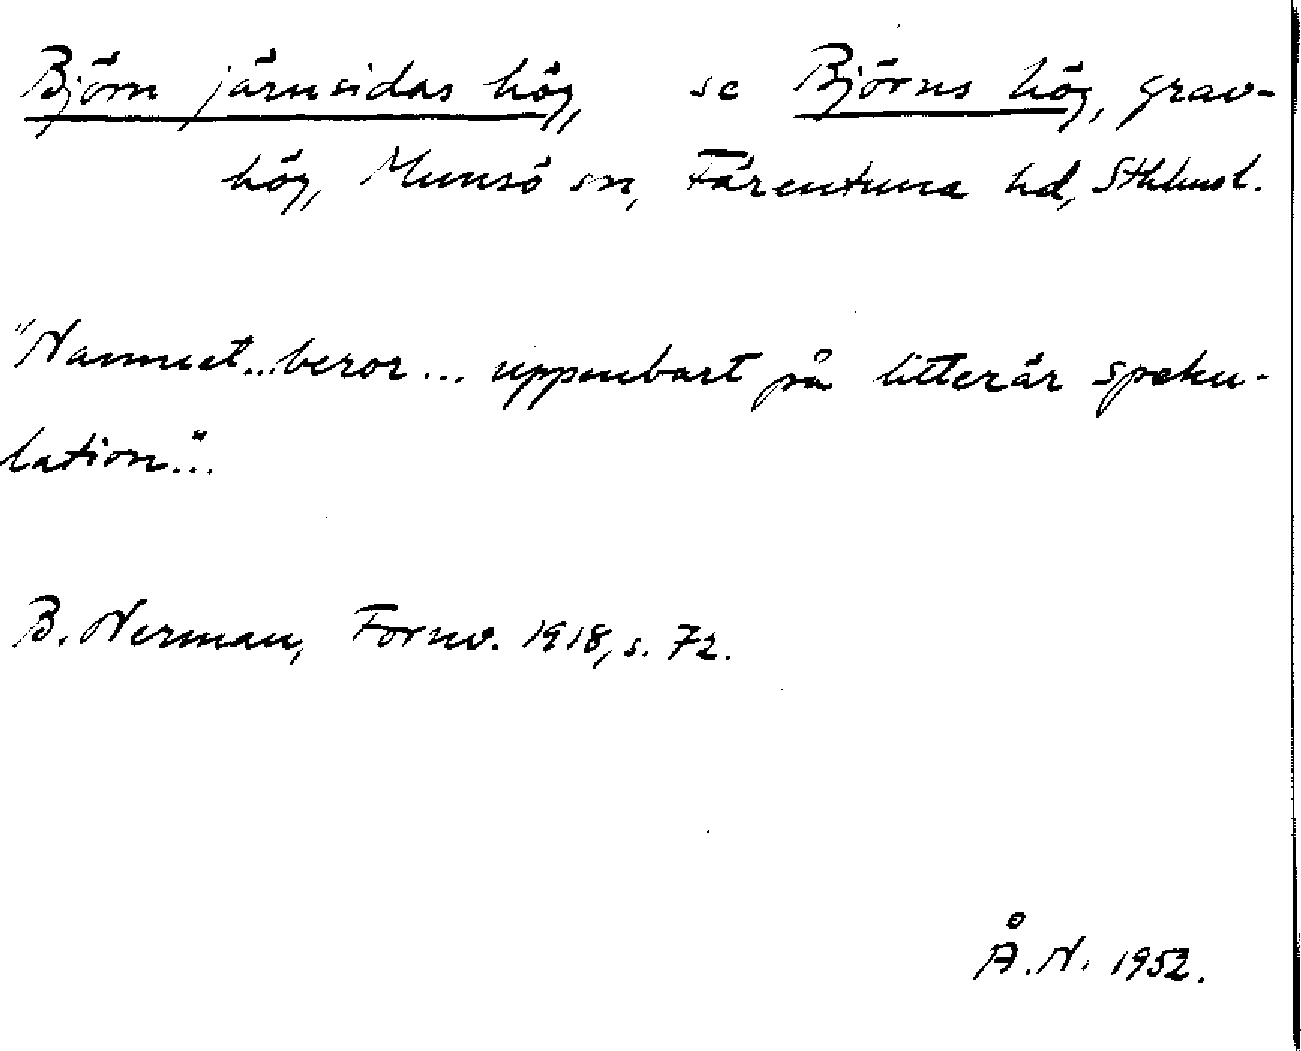 Björn järnsidas hög, se Björns hög, grav-
hög, Munsö sn, Färentuna hd, Sthlms l.
"Namnet.. beror... uppenbart på litterär speku-
lation"...
B. Nerman, Fornv. 1918, s. 72.
Å.N. 1952.